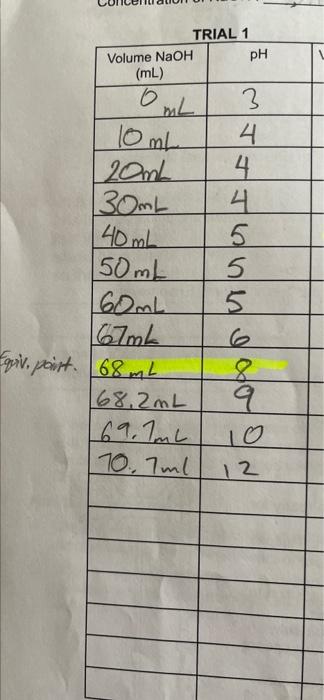 TRIAL 1
Volume NaOH (mL) pH
0 mL 3
10 mL 4
20mL 4
30mL 4
40 mL 5
50 mL 5
60mL 5
67mL 6
Equiv. point. 68 mL 8
68.2mL 9
69.7mL 10
70.7ml 12